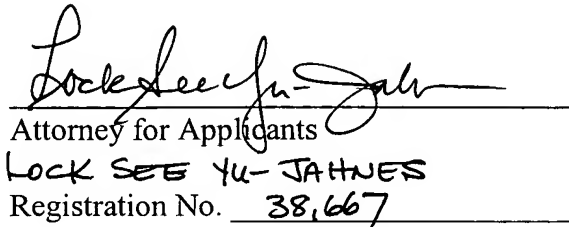 Lock See Yu-Jahnes
Attorney for Applicants
LOCK SEE YU-JAHNES
Registration No. 38,667